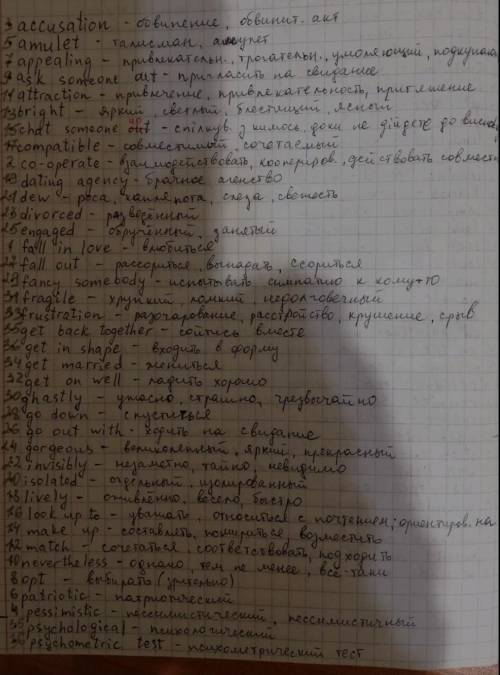 3 accusation - обвинение, обвинит. акт
5 amulet - талисман, амулет
7 appealing - привлекательн., трогательн., умоляющий,
9 ask someone out - пригласить на свидание
11 attraction - привлечение, привлекательность, притяжение
13 bright - яркий, светлый, блестящий, ясный
15 chat someone up - спілкув. з кимось, доки не дійдете до
17 compatible - совместимый, сочетаемый
2 co-operate - взаимодействовать, коопериров., действовать совместно
19 dating agency - брачное агенство
21 dew - роса, капля пота, слеза, свежесть
23 divorced - разведённый
25 engaged - обручённый, занятый
1 fall in love - влюбиться
27 fall out - рассориться, выпадать, ссориться
29 fancy somebody - испытывать симпатию к кому-то
31 fragile - хрупкий, ломкий, недолговечный
33 frustration - разочарование, расстройство, крушение, срыв
35 get back together - сойтись вместе
36 get in shape - входить в форму
34 get married - жениться
32 get on well - ладить хорошо
30 ghastly - ужасно, страшно, чрезвычайно
28 go down - спуститься
26 go out with - ходить на свидание
24 gorgeous - великолепный, яркий, прекрасный
22 invisibly - незаметно, тайно, невидимо
20 isolated - отдельный, изолированный
18 lively - оживлённо, весело, быстро
16 look up to - уважать, относиться с почтением; ориентиров. на
14 make up - составлять, помириться, возместить
12 match - сочетаться, соответствовать, подходить
10 nevertheless - однако, тем не менее, всё-таки
8 opt - выбирать
6 patriotic - патриотический
4 pessimistic - пессимистический, пессимистичный
psychological - психологический
psychometric test - психометрический тест